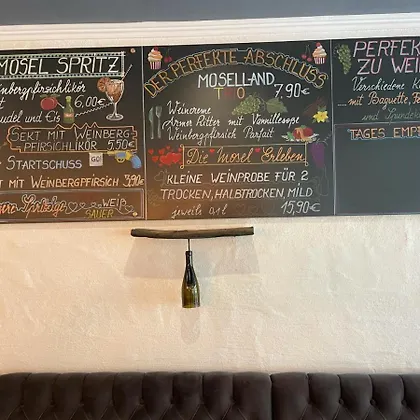 MOSEL SPRITZ
nbergpfirsichlikör
6,00€
udel und Eis
SEKT MIT WEINBERG
PFIRSICHLIKÖR 5,50€
STARTSCHUSS GO!
T MIT WEINBERGPFIRSICH 3,90€
WEIß
SAUER
DER PERFEKTE ABSCHLUSS
MOSELLAND
TRIO 7,90€
Weincreme
Armer Ritter mit Vanillesoße
Weinbergpfirsich Parfait
Die Mosel Erleben
KLEINE WEINPROBE FÜR 2
TROCKEN, HALBTROCKEN, MILD
jeweils 0,1 l 15,90€
PERFEK
ZU WEI
Verschiedene K
... mit Baguette, T
und
TAGES EMP